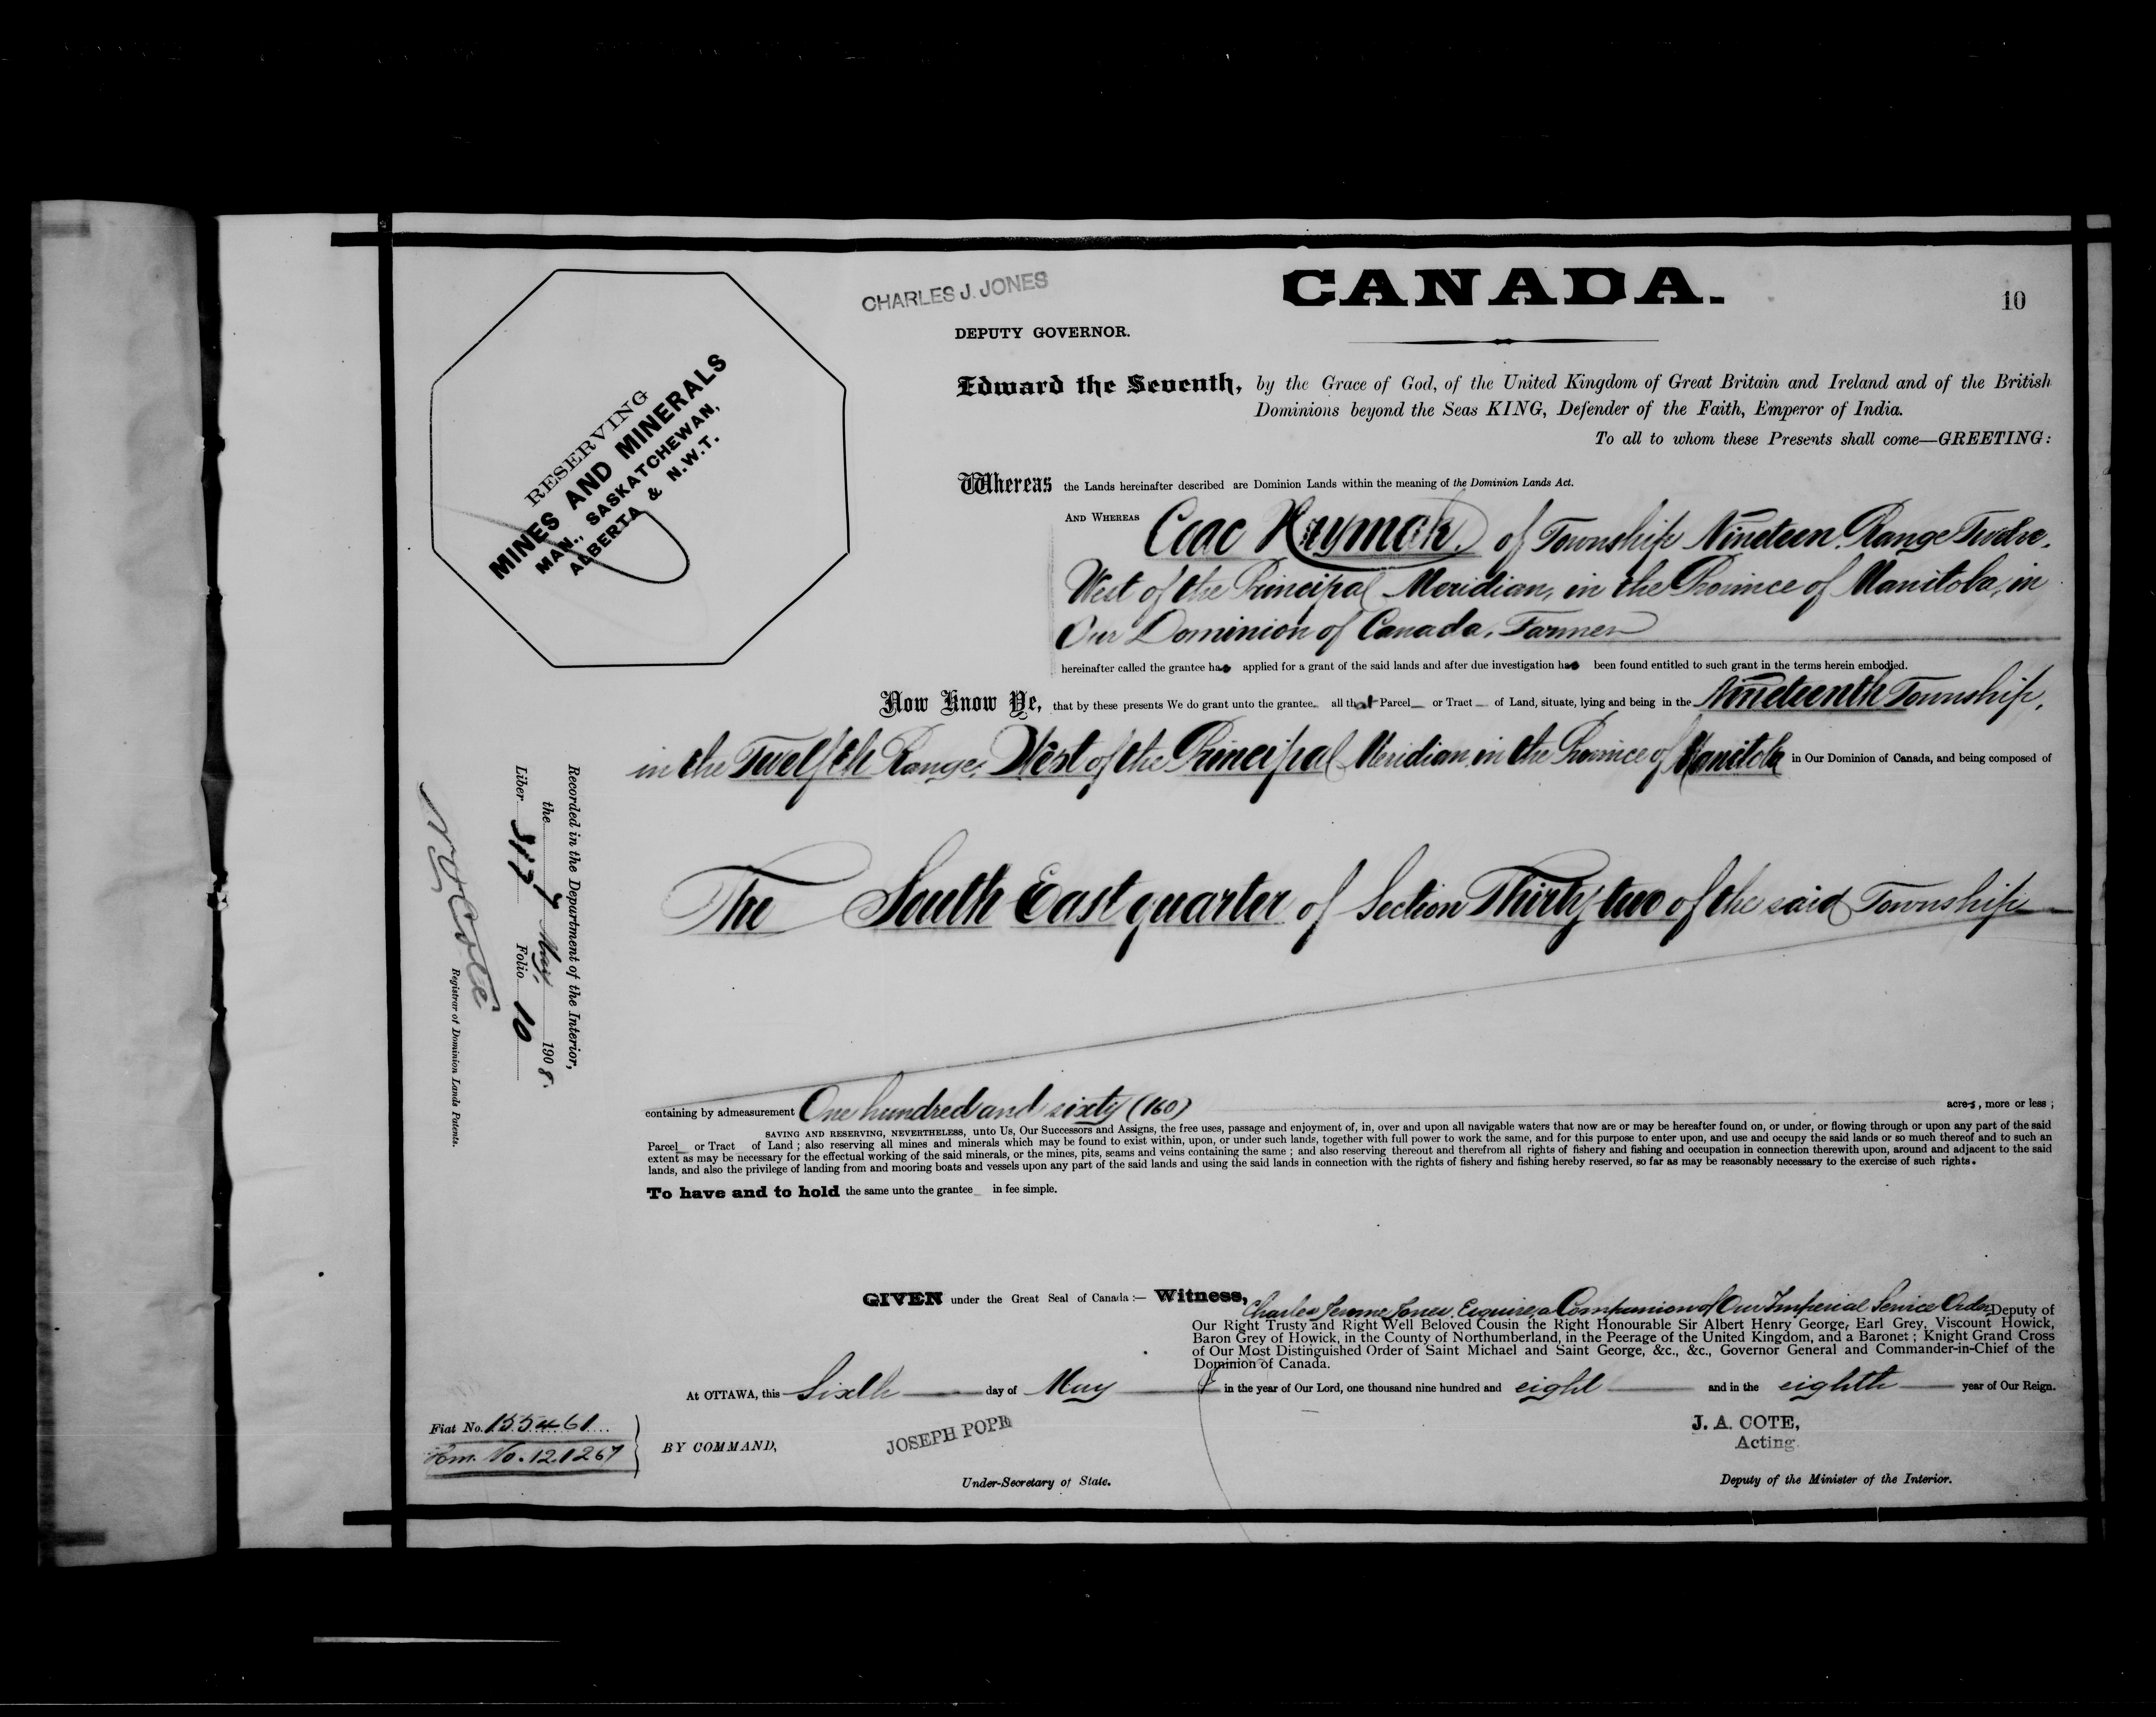 CHARLES J. JONES
CANADA.
10
DEPUTY GOVERNOR.
RESERVING
MINES AND MINERALS
MAN., SASKATCHEWAN,
ALBERTA & N.W.T.
Edward the Seventh, by the Grace of God, of the United Kingdom of Great Britain and Ireland and of the British
Dominions beyond the Seas KING, Defender of the Faith, Emperor of India.
To all to whom these Presents shall come—GREETING:
Whereas the Lands hereinafter described are Dominion Lands within the meaning of the Dominion Lands Act.
AND WHEREAS of Township Nineteen, Range Twelve,
West of the Principal Meridian, in the Province of Manitoba, in
Our Dominion of Canada, Farmer
hereinafter called the grantee has applied for a grant of the said lands and after due investigation has been found entitled to such grant in the terms herein embodied.
Now Know Ye, that by these presents We do grant unto the grantee all that Parcel or Tract of Land, situate, lying and being in the Nineteenth Township,
in the Twelfth Range, West of the Principal Meridian, in the Province of Manitoba in Our Dominion of Canada, and being composed of
The South East quarter of Section Thirty two of the said Township
containing by admeasurement One hundred and sixty (160) acres, more or less ;
SAVING AND RESERVING, NEVERTHELESS, unto Us, Our Successors and Assigns, the free uses, passage and enjoyment of, in, over and upon all navigable waters that now are or may be hereafter found on, or under, or flowing through or upon any part of the said
Parcel or Tract of Land ; also reserving all mines and minerals which may be found to exist within, upon, or under such lands, together with full power to work the same, and for this purpose to enter upon, and use and occupy the said lands or so much thereof and to such an
extent as may be necessary for the effectual working of the said minerals, or the mines, pits, seams and veins containing the same ; and also reserving thereout and therefrom all rights of fishery and fishing and occupation in connection therewith upon, around and adjacent to the said
lands, and also the privilege of landing from and mooring boats and vessels upon any part of the said lands and using the said lands in connection with the rights of fishery and fishing hereby reserved, so far as may be reasonably necessary to the exercise of such rights.
To have and to hold the same unto the grantee in fee simple.
GIVEN under the Great Seal of Canada :— Witness, Charles Jerome Jones, Esquire, a Companion of Our Imperial Service Order, Deputy of
Our Right Trusty and Right Well Beloved Cousin the Right Honourable Sir Albert Henry George, Earl Grey, Viscount Howick,
Baron Grey of Howick, in the County of Northumberland, in the Peerage of the United Kingdom, and a Baronet ; Knight Grand Cross
of Our Most Distinguished Order of Saint Michael and Saint George, &c., &c., Governor General and Commander-in-Chief of the
Dominion of Canada.
At OTTAWA, this Sixth day of May in the year of Our Lord, one thousand nine hundred and eight and in the eighth year of Our Reign.
Fiat No. 155461
Hm. No. 121267
BY COMMAND,
JOSEPH POPE
Under-Secretary of State.
J. A. COTE,
Acting
Deputy of the Minister of the Interior.
Recorded in the Department of the Interior,
the 7 May, 1908.
Liber Folio 10
Registrar of Dominion Lands Patents.